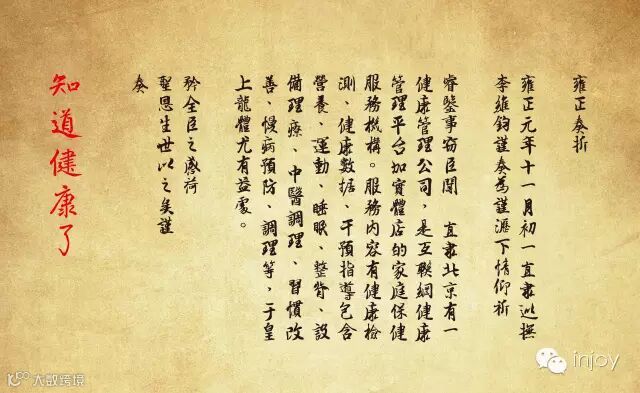 雍正奏折
雍正元年十一月初一直隶巡撫
李維鈞謹奏為謹瀝下情仰祈
睿鑒事窃臣聞 直隶北京有一
健康管理公司，是互聯網健康
管理平台加實體店的家庭保健
服務機構。服務内容有健康檢
測、健康數据、干預指導包含
營養、運動、睡眠、整脊、設
備理療、中醫調理、習慣改
善、慢病預防、調理等，于皇
上龍體尤有益處。
矜全臣之感荷
聖恩生世以之矣謹
奏
知道健康了
injoy
大数跨境